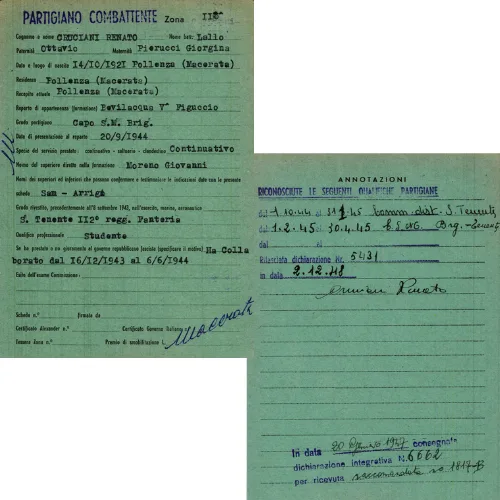 PARTIGIANO COMBATTENTE Zona II8^
Cognome e nome CRUCIANI RENATO Nome batt. Lallo
Paternità Ottavio Maternità Pierucci Giorgina
Data e luogo di nascita 14/10/1921 Pollenza (Macerata)
Residenza Pollenza (Macerata)
Recapito attuale Pollenza (Macerata)
Reparto di appartenenza (formazione) Bevilacqua V^ Piguccio
Grado partigiano Capo S.M. Brig.
Data di presentazione al reparto 20/9/1944
Specie del servizio prestato: continuativo - saltuario - clandestino Continuativo
Nome del superiore diretto nella formazione Moreno Giovanni
Nomi dei superiori ed inferiori che possono confermare e testimoniare le indicazioni date con la presente
scheda Sam - Arriga
Grado rivestito, precedentemente all'8 settembre 1943, nell'esercito, marina, aeronautica
S. Tenente II2° regg. Fanteria
Qualifica professionale Studente
Se ha prestato o no giuramento al governo repubblicano (evviva (specificare il motivo) Ha Colla
borato dal I6/I2/1943 al 6/6/1944
Esito dell'esame Commissione:
Scheda n.° firmata da
Certificato Alexander n.° Certificato Governo Italiano
Tessera Zona n.° Premio di smobilitazione L.
Macerata
ANNOTAZIONI
RICONOSCIUTE LE SEGUENTI QUALIFICHE PARTIGIANE
dal 1.10.44 al 31 1 45 Comm. dist. S. Tenente
dal 1.2.45 al 30.4.45 C.S.M. Brg.
dal al
Rilasciata dichiarazione Nr. 5431
in data 2.12.48
Cruciani Renato
In data 20 1947 consegnata
dichiarazione integrativa N. 6662
per ricevuta raccomandata no 1817-B